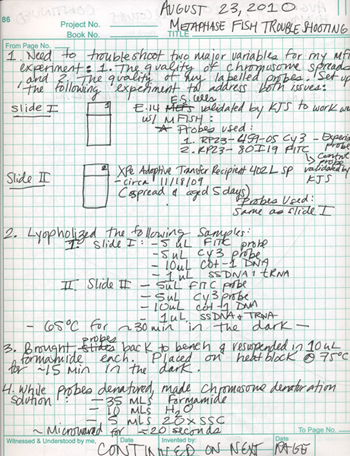 AUGUST 23, 2010
86
Project No.
Book No.
TITLE
METAPHASE FISH TROUBLESHOOTING
From Page No.
1. Need to troubleshoot two major variables for my mFISH
experiment: 1. The quality of chromosome spreads
and 2. The quality of my labelled probes. Set up
the following experiment to address both issues:
E.S. cells
Slide I
E.14 MEFs validated by KJS to work well
w/ MFISH:
* Probes used:
1. RP23-459-05 Cy3 - Experimental probe
2. RP23-80I19 FITC
↳ Control probe
validated by KJS
Slide II
XPC Adoptive Transfer Recipient 402L SP
- circa 11/18/09
(spread & aged 5 days)
Probes Used:
Same as slide I
2. Lyopholized the following samples:
I. Slide I: - 5 uL FITC probe
- 5 uL Cy3 probe
- 10uL Cot-1 DNA
- 1 uL SSDNA + tRNA
II Slide II - 5uL FITC probe
5uL Cy3 probe
- 10uL Cot-1 DNA
- 1uL SSDNA + TRNA
- 65°C for ~30 min in the dark -
probes
3. Brought slides back to bench & resuspended in 10uL
formamide each. Placed on heatblock @ 75°C
for ~15 min in the dark.
4. While probes denatured, made chromosome denaturation
solution:
- 35 mLs Formamide
- 10 mLs H2O
- 5 mLs 20XSSC
~ Microwaved for ~20 seconds
To Page No.
Witnessed & Understood by me,
Date
Invented by:
Date
CONTINUED ON NEXT PAGE